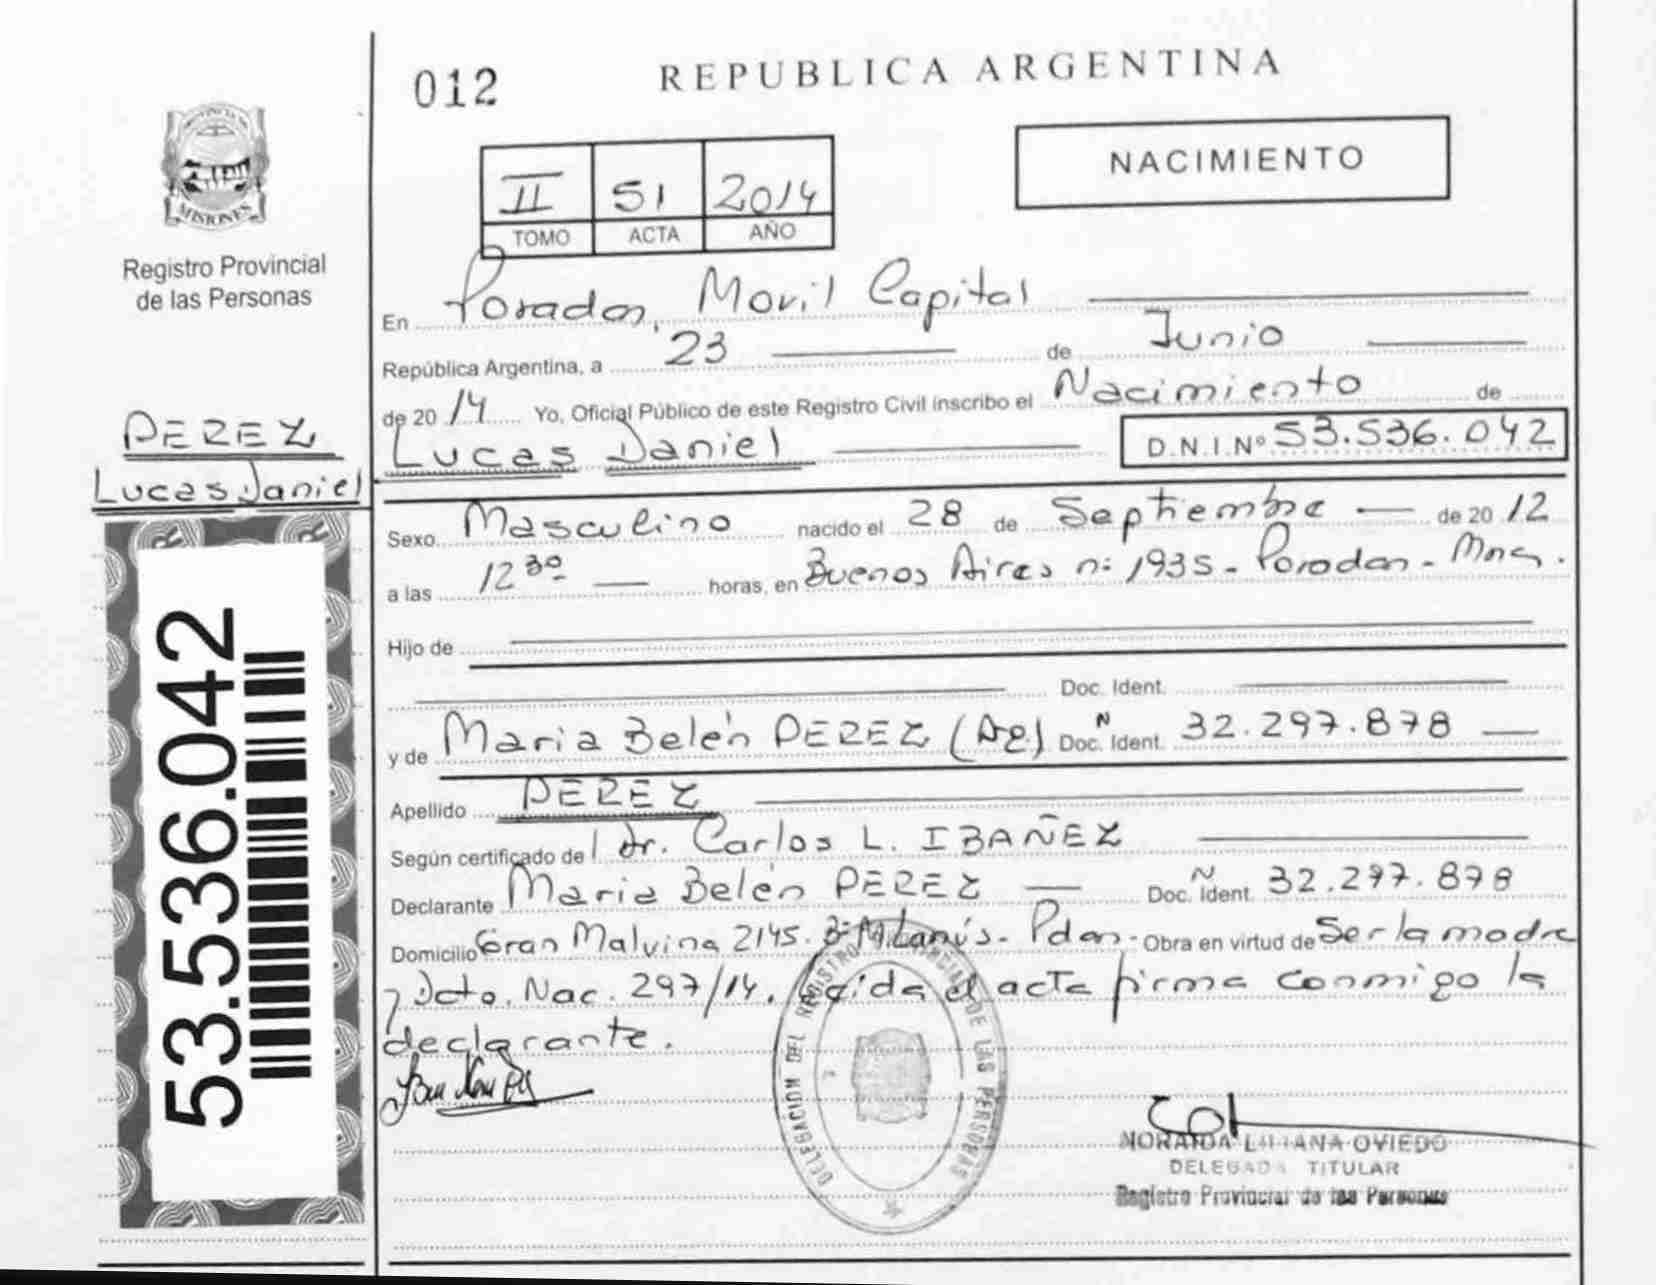 012
REPUBLICA ARGENTINA
PROVINCIA DE
MISIONES
Registro Provincial
de las Personas
II 51 2014
TOMO ACTA AÑO
NACIMIENTO
En Posadas, Movil Capital
República Argentina, a 23 de Junio
de 2014 Yo, Oficial Público de este Registro Civil inscribo el Nacimiento de
Lucas Daniel D.N.I.Nº 53.536.042
PEREZ
Lucas Daniel
53.536.042
Sexo Masculino nacido el 28 de Septiembre de 2012
a las 12 30 horas, en Buenos Aires nº 1935 - Posadas - Mnes.
Hijo de
Doc. Ident.
y de Maria Belén PEREZ (Ag) Doc. Ident. N 32.297.878
Apellido PEREZ
Según certificado del Dr. Carlos L. IBAÑEZ
Declarante Maria Belén PEREZ Doc. Ident. N 32.297.878
Domicilio Gran Malvina 2145. Bº M. Lanús - Pdas. Obra en virtud de Ser la madre
y Dcto. Nac. 297/14. Leída el acta firma conmigo la
declarante.
DELEGACION DEL REGISTRO PROVINCIAL DE LAS PERSONAS
NORAIDA LILIANA OVIEDO
DELEGADA TITULAR
Registro Provincial de las Personas